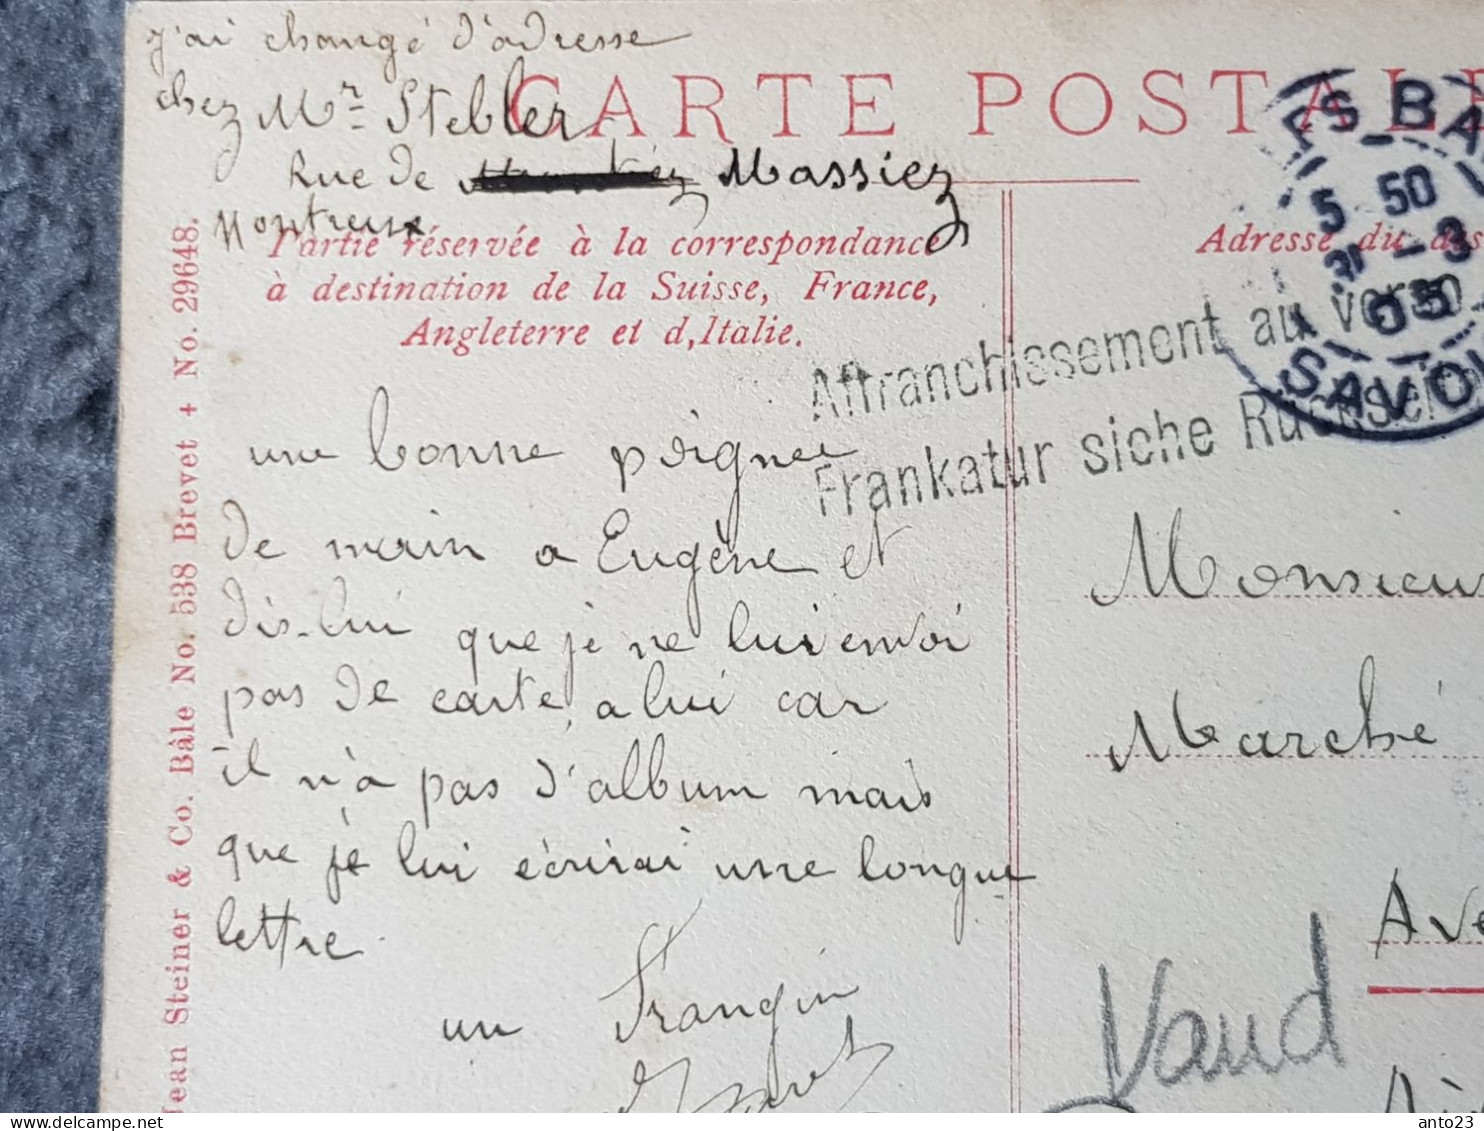 j'ai changé d'adresse
chez Mr Stebler
Rue de Massiez
Montreux
CARTE POSTALE
Partie réservée à la correspondance
à destination de la Suisse, France,
Angleterre et d,Italie.
Adresse du des
ES-BA
5 50
31 -3
05
SAVOI
Affranchissement au verso.
Frankatur siche Rückseite
une bonne poignee
de main a Eugène et
dis-lui que je ne lui envoi
pas de carte, a lui car
il n'a pas d'album mais
que je lui écrirai une longue
lettre.
un Frangin
Monsieur
Marché
Ave
Vaud
Jean Steiner & Co. Bâle No. 538 Brevet + No. 29648.
anto23